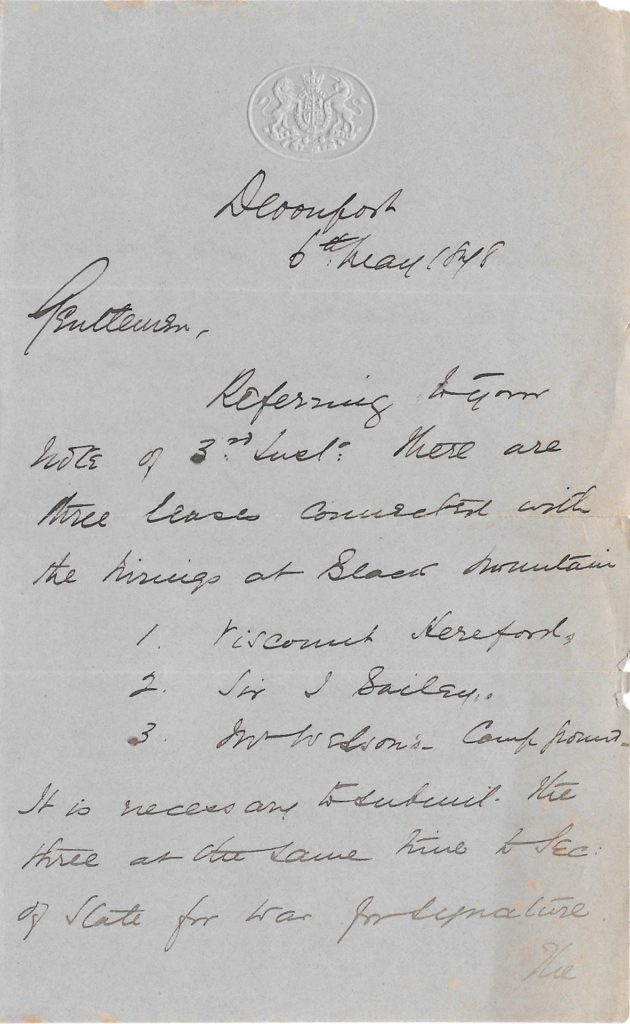 Devonport
6th May 1898
Gentlemen,
Referring to your
note of 3rd Inst: there are
three leases connected with
the hirings at Black Mountain
1. Viscount Hereford,
2. Sir J Bailey,
3. Camp Ground
It is necessary to submit the
three at the same time to Sec:
of State for War for signature.
The